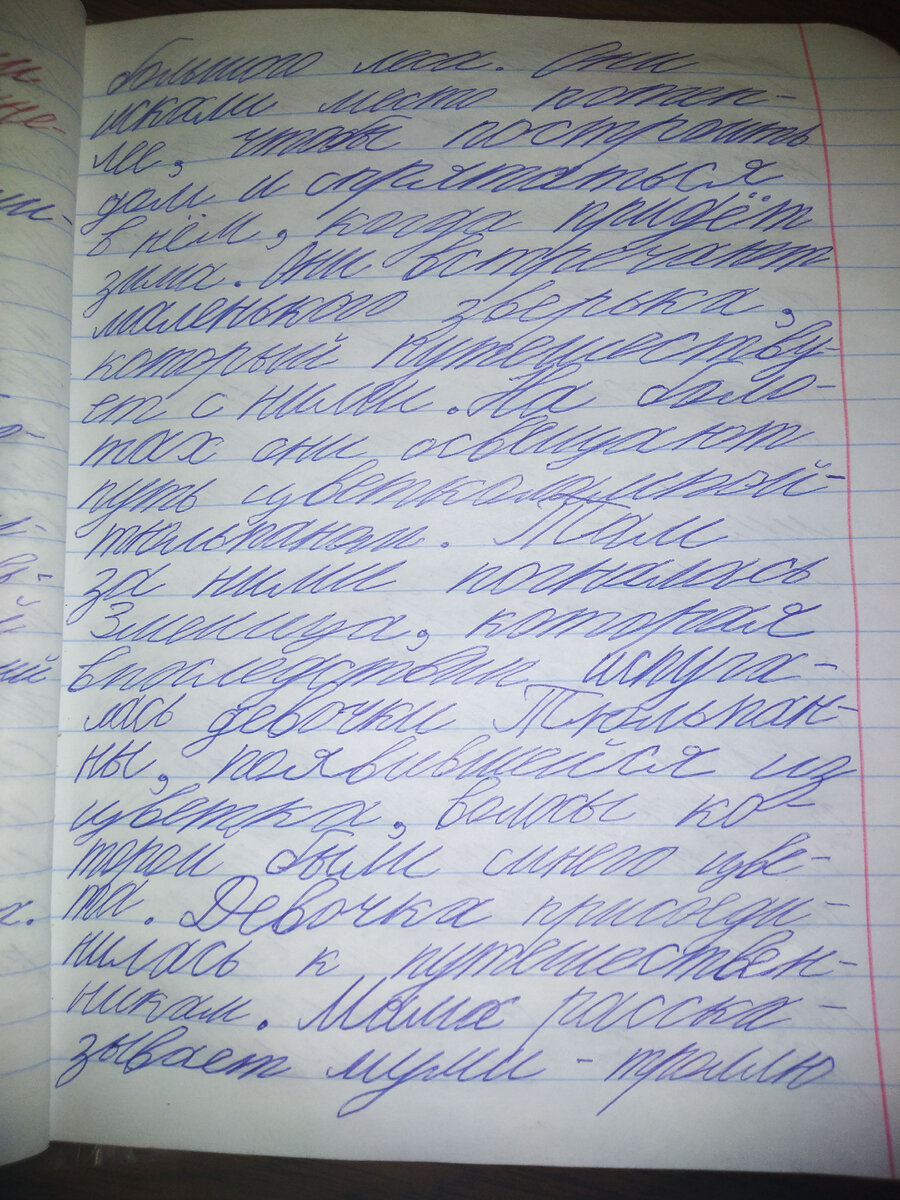 большого леса. Они
искали место потеп-
лее, чтобы построить
дом и спрятаться
в нём, когда придёт
зима. Они встречают
маленького зверька,
который путешеству-
ет с ними. На боло-
тах они освещают
путь цветком
тюльпаном. Там
за ними погналась
Змеища, которая
впоследствии испуга-
лась девочки Тюльпан-
ны, появившейся из
цветка, волосы ко-
торой были синего цве-
та. Девочка присоеди-
нилась к путешествен-
никам. Мама расска-
зывает муми-троллю